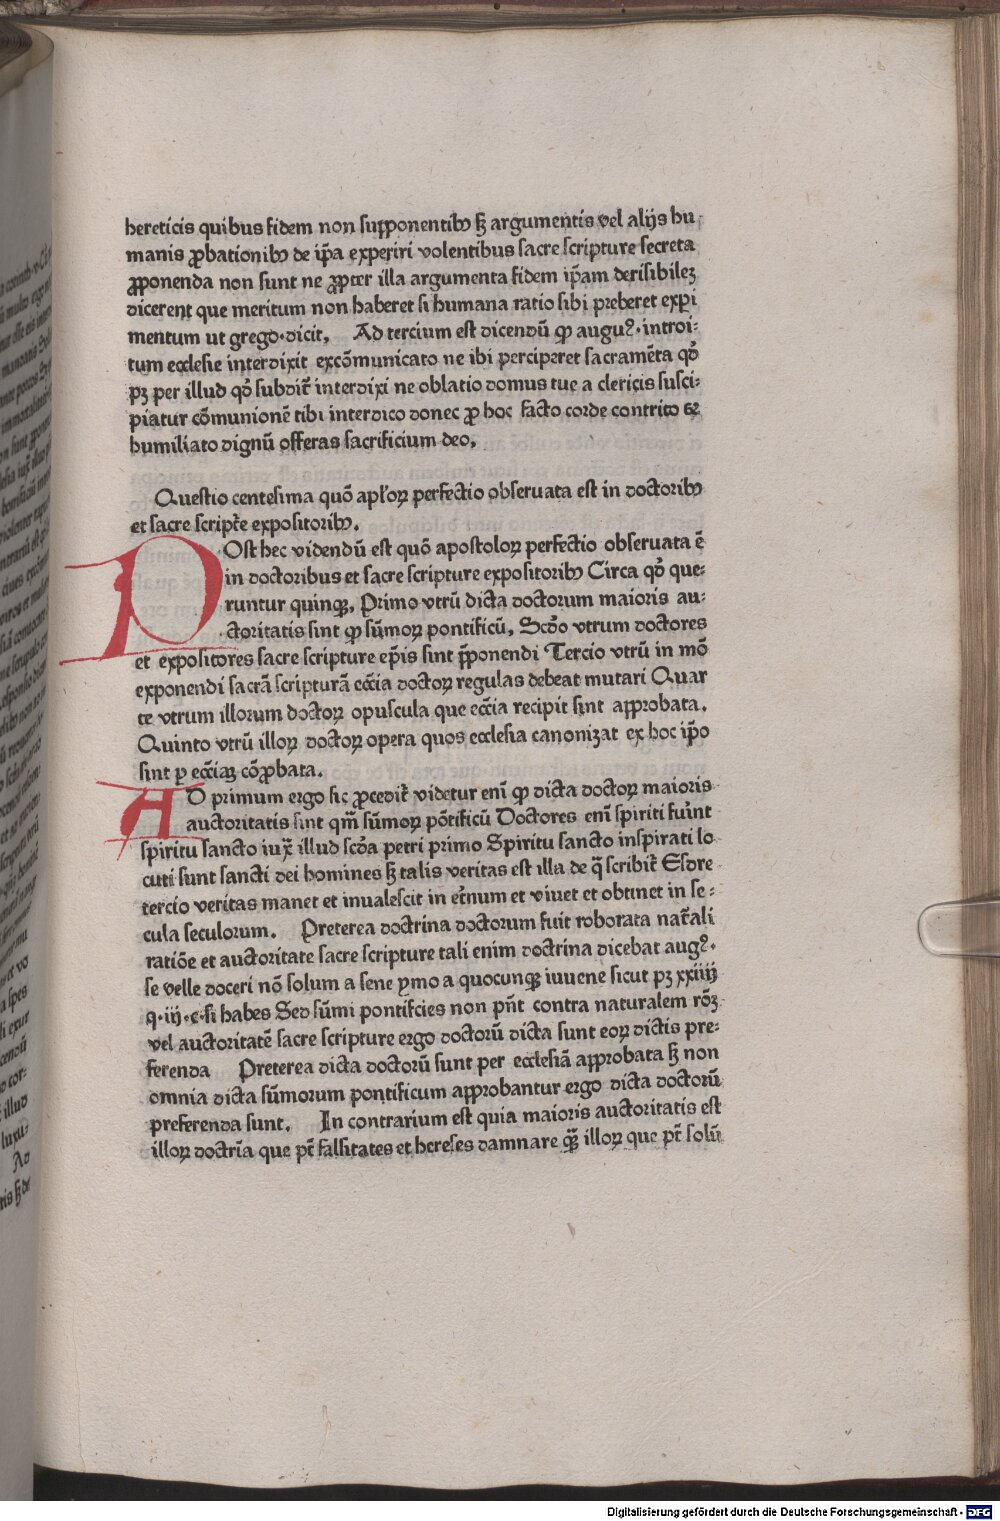 hereticis quibus fidem non supponentibꝰ sꝫ argumentis vel alijs hu-
manis ꝓbationibꝰ de ip̃a experiri volentibus sacre scripture secreta
ꝓponenda non sunt ne ꝓpter illa argumenta fidem ip̃am derisibileꝫ
dicerent que meritum non haberet si humana ratio sibi preberet expi
mentum ut grego·dicit. Ad tercium est dicendũ ꝙ augu?·introi-
tum ecclesie interdixit excõmunicato ne ibi perciperet sacramẽta qđ
pꝫ per illud qđ subdit̃ interdixi ne oblatio domus tue a clericis susci-
piatur cõmunionẽ tibi interdico donec ꝓ hoc facto corde contrito et
humiliato dignũ offeras sacrificium deo.
Questio centesima quõ apl'oꝝ perfectio obseruata est in doctoribꝰ
et sacre script̃e expositoribꝰ.
POst hec videndũ est quõ apostoloꝝ perfectio obseruata ẽ
in doctoribus et sacre scripture expositoribꝰ Circa qđ que-
runtur quinqꝫ. Primo vtrũ dicta doctorum maioris au-
ctoritatis sint ꝙ sũmoꝝ pontificũ. Scđo vtrum doctores
et expositores sacre scripture ep̃is sint p̃ponendi Tercio vtrũ in mõ
exponendi sacrã scripturã ecc̃ia doctoꝝ regulas debeat mutari Quar
te vtrum illorum doctoꝝ opuscula que ecc̃ia recipit sint approbata.
Quinto vtrũ illoꝝ doctoꝝ opera quos ecclesia canonizat ex hoc ip̃o
sint ꝑ ecc̃iaꝫ cõꝓbata.
AD primum ergo sic ꝓcedit̃ videtur enĩ ꝙ dicta doctoꝝ maioris
auctoritatis sint qm̃ sũmoꝝ põtificũ Doctores enĩ spiriti fuĩnt
spiritu sancto iux̃ illud scđa petri primo Spiritu sancto inspirati lo
cuti sunt sancti dei homines sꝫ talis veritas est illa de q̃ scribit̃ Esdre
tercio veritas manet et inualescit in et̃num et viuet et obtinet in se-
cula seculorum. Preterea doctrina doctorum fuit roborata nat̃ali
ratiõe et auctoritate sacre scripture tali enim doctrina dicebat aug?·
se velle doceri nõ solum a sene ꝑmo a quocunqꝫ iuuene sicut pꝫ xxiiij
q·iij·c·si habes Sed sũmi pontificies non pñt contra naturalem rõꝫ
vel auctoritatẽ sacre scripture ergo doctorũ dicta sunt eoꝝ dictis pre-
ferenda Preterea dicta doctorũ sunt per ecclesiã approbata sꝫ non
omnia dicta sũmorum pontificum approbantur ergo dicta doctorũ
preferenda sunt. In contrarium est quia maioris auctoritatis est
illoꝝ doctrĩa que pt̃ falsitates et hereses damnare ꝙ̃ illoꝝ que pt̃ solũ
Digitalisierung gefördert durch die Deutsche Forschungsgemeinschaft - DFG